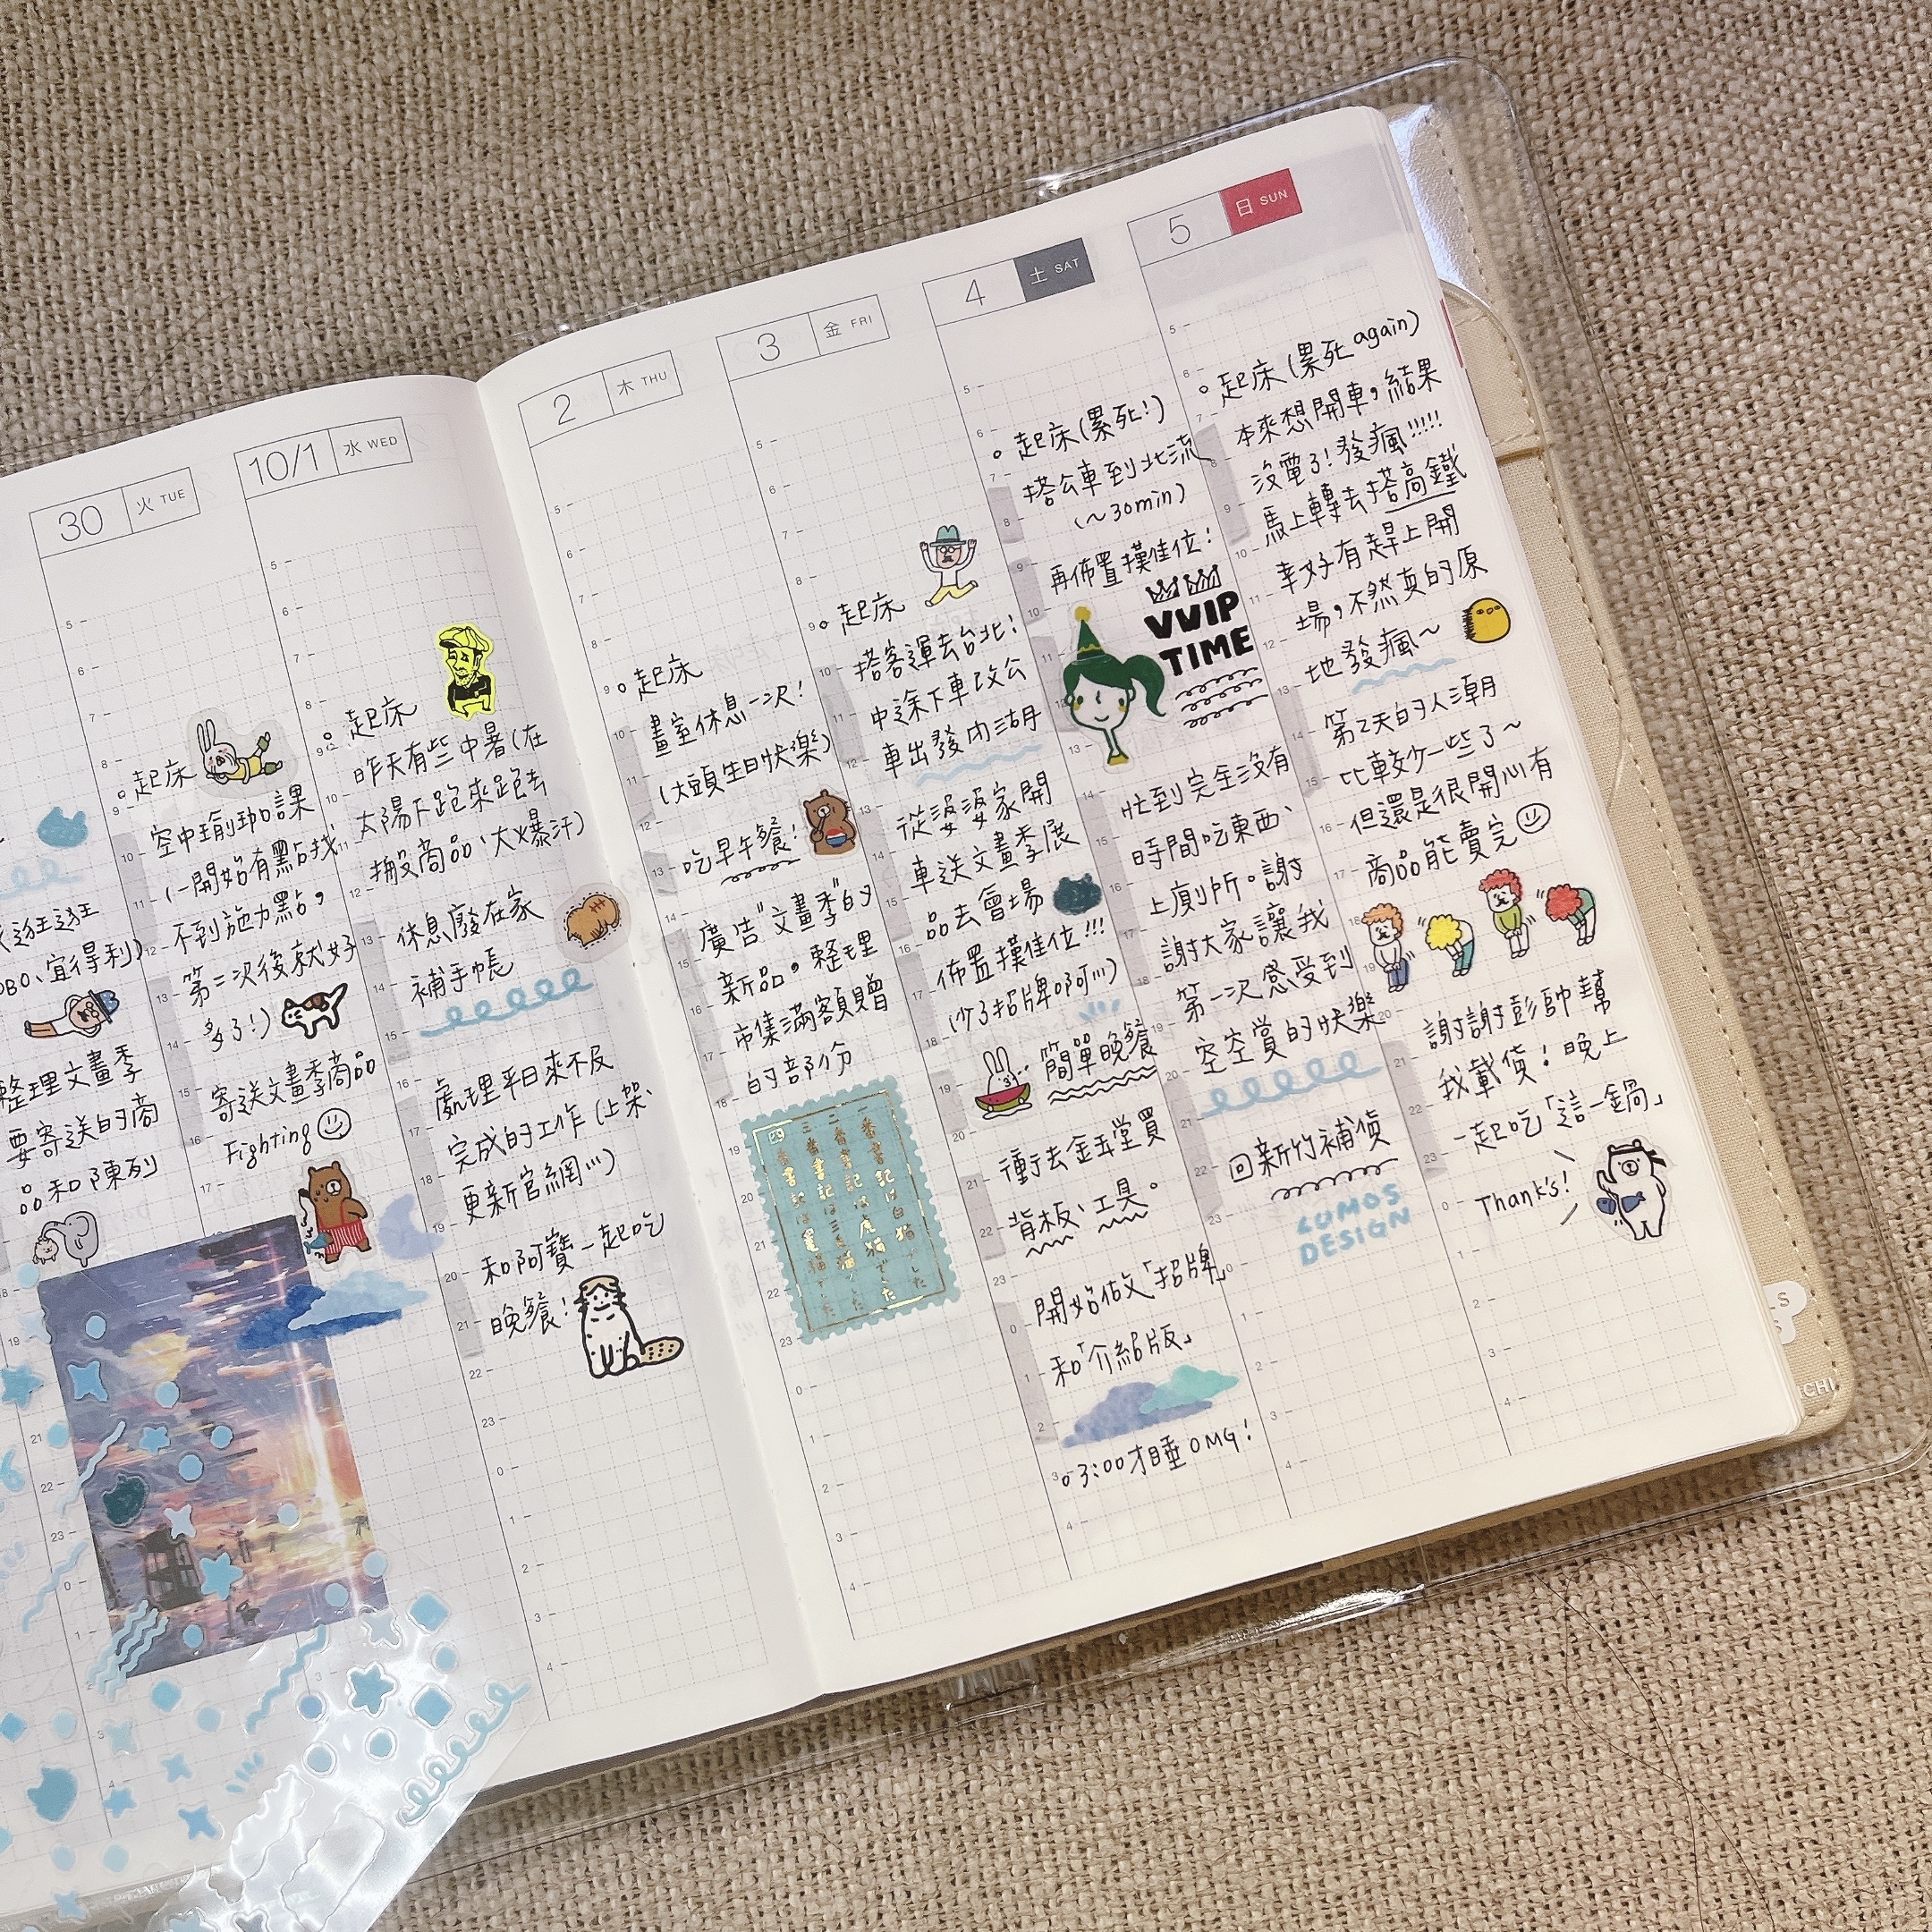 逛逛
宜得利)
整理文畫季
要寄送的商
品和陳列
30 火 TUE
起床
空中瑜珈課
(一開始有點找
不到施力點,
第二次後就好
多了!)
寄送文畫季商品
Fighting
10/1 水 WED
起床
昨天有些中暑(在
太陽下跑來跑去
搬商品、大爆汗)
休息廢在家
補手帳
處理平日來不及
完成的工作(上架、
更新官網...)
和阿寶一起吃
晚餐!
2 木 THU
起床
畫室休息一次!
(大頭生日快樂)
吃早午餐!
廣告"文畫季"的
新品。整理
市集滿額贈
的部分
一番書記は白猫でした
二番書記は虎猫でした
三番書記は三毛猫でした
四番書記は黒猫でした
3 金 FRI
起床
搭客運去台北!
中途下車改公
車出發內湖
從婆婆家開
車送文畫季展
品去會場
佈置攤位!!!
(少了招牌啊...)
簡單晚餐
衝去金玉堂買
背板、工具。
開始做「招牌」
和「介紹版」
3:00才睡 OMG!
4 土 SAT
起床(累死!)
搭公車到北流
(~30min)
再佈置攤位!
VVIP
TIME
忙到完全沒有
時間吃東西、
上廁所。謝
謝大家讓我
第一次感受到
空空賞的快樂
回新竹補貨
LUMOS
DESIGN
5 日 SUN
起床(累死again)
本來想開車,結果
沒電了!發瘋!!!!!
馬上轉去搭高鐵
幸好有趕上開
場,不然真的原
地發瘋~
第2天的人潮
比較少一些了~
但還是很開心有
商品能賣完
謝謝彭帥幫
我載貨!晚上
一起吃「這一鍋」
Thank's!